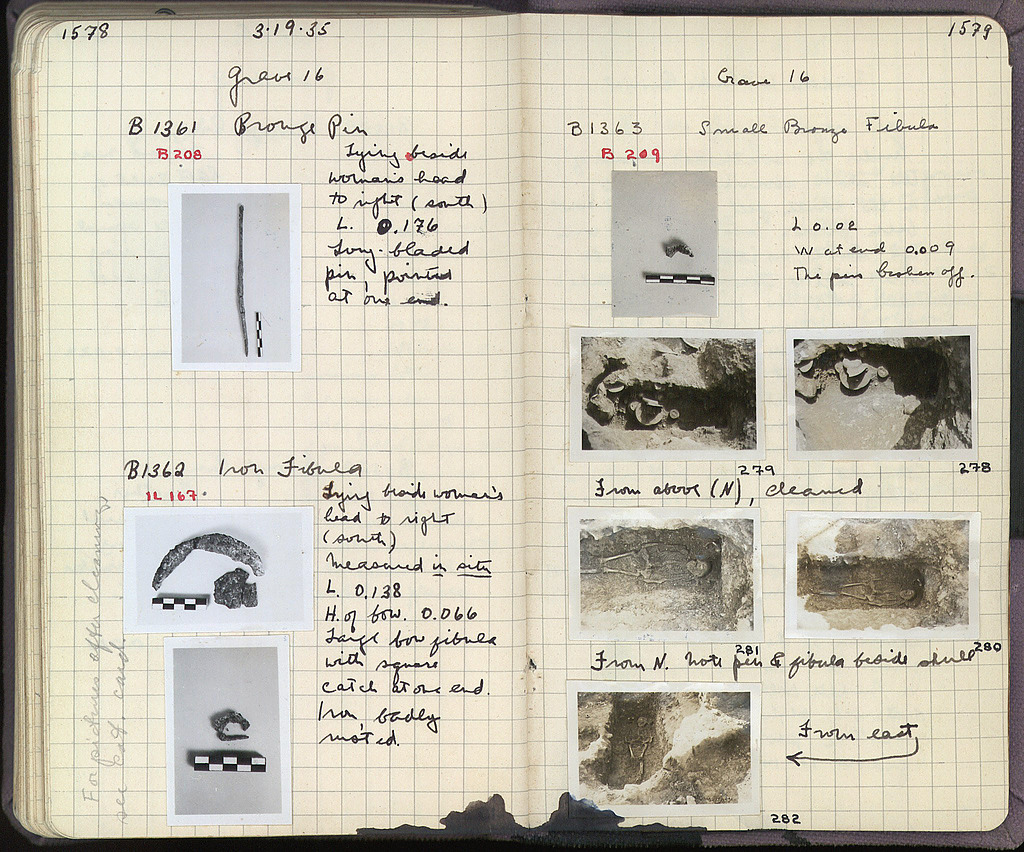 1578
3·19·35
Grave 16
B 1361 Bronze Pin
B 208
Lying beside
woman's head
to right (south)
L. 0.176
Long-bladed
pin, pointed
at one end.
B1362 Iron Fibula
IL 167.
Lying beside woman's
head to right
(south)
Measured in situ
L. 0.138
H. of bow. 0.066
Large bow fibula
with square
catch at one end.
Iron, badly
rusted.
For pictures after cleaning,
see cat. card.
1579
Grave 16
B1363 Small Bronze Fibula
B 209
L 0.02
W at end 0.009
The pin broken off.
279
278
From above (N), cleaned
281
280
From N. Note pin & fibula beside skull
From east
282